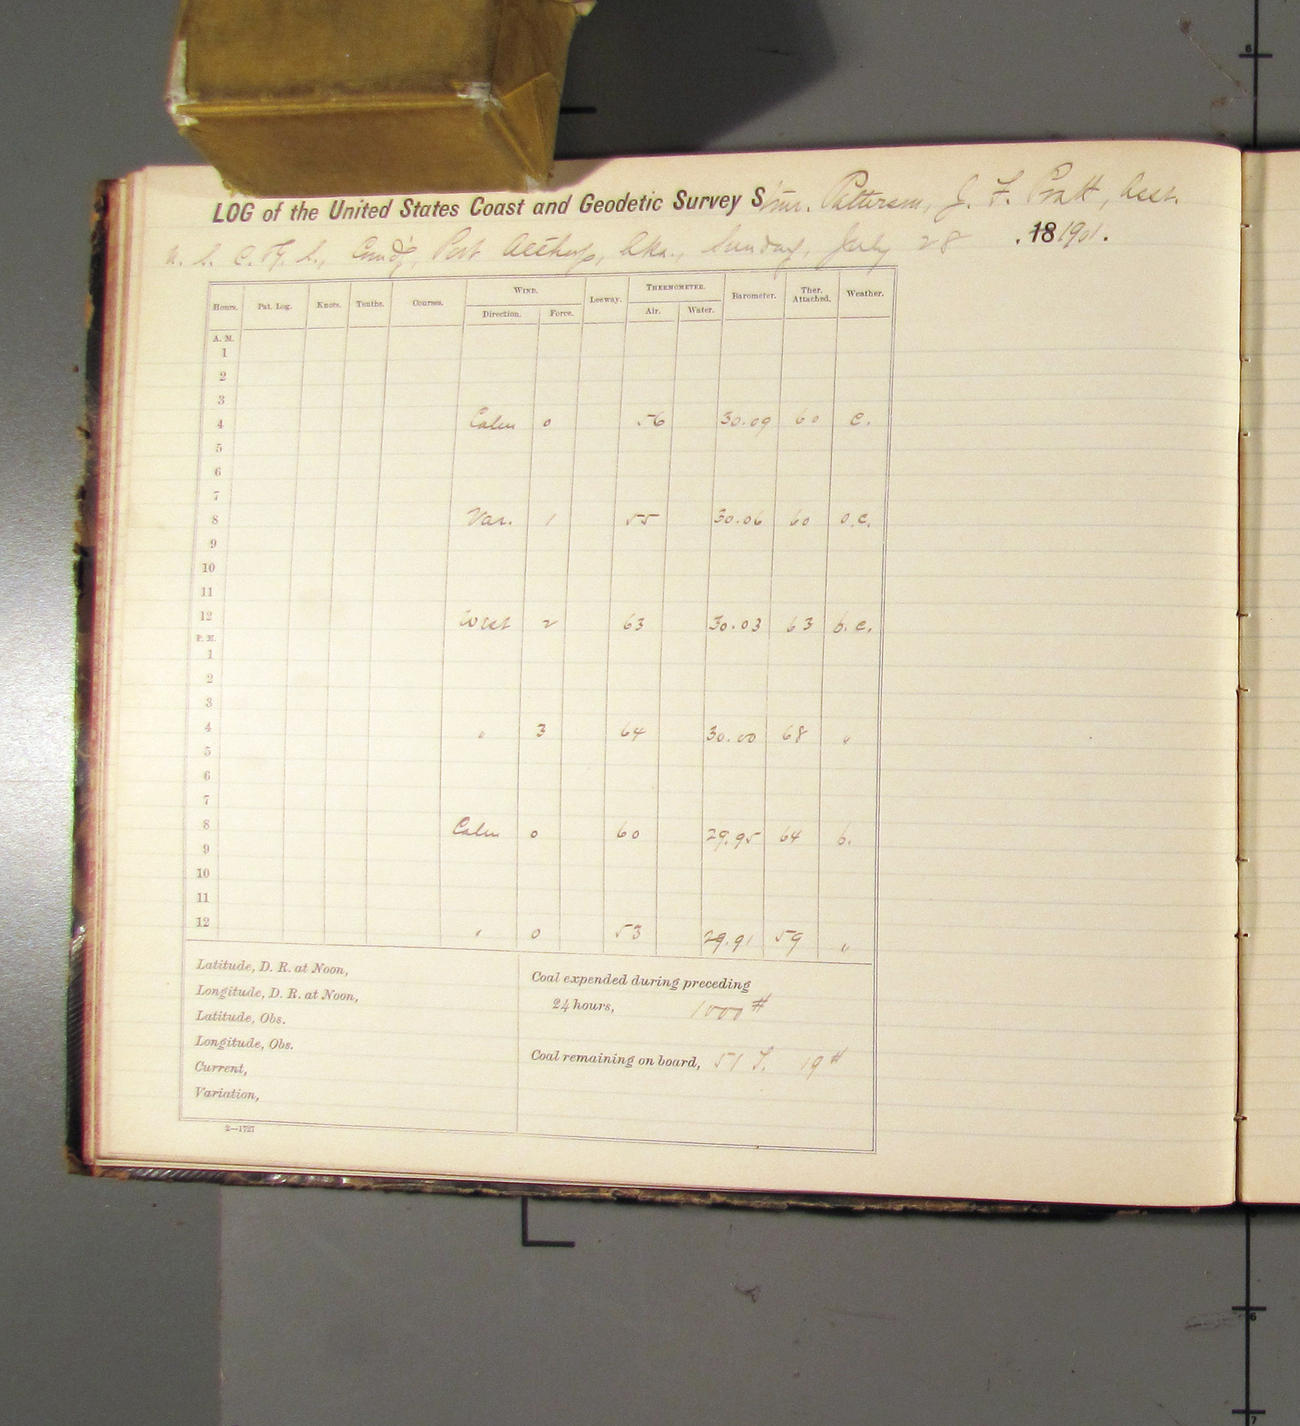 LOG of the United States Coast and Geodetic Survey Stmr. Patterson, J. F. Pratt, Asst.
U. S. C. & G. S., Comd'g, Port Althorp, Aka., Sunday, July 28, 18 1901.
WIND. THERMOMETER.
Hours. Pat. Log. Knots. Tenths. Courses. Direction. Force. Leeway. Air. Water. Barometer. Ther. Attached. Weather.
A. M.
1
2
3
4 Calm 0 56 30.09 60 c.
5
6
7
8 Var. 1 55 30.06 60 o.c.
9
10
11
12 West 2 63 30.03 63 b.c.
P. M.
1
2
3
4 " 3 64 30.00 68 "
5
6
7
8 Calm 0 60 29.95 64 b.
9
10
11
12 " 0 53 29.91 59 "
Latitude, D. R. at Noon,
Longitude, D. R. at Noon,
Latitude, Obs.
Longitude, Obs.
Current,
Variation,
Coal expended during preceding
24 hours, 1000 #
Coal remaining on board, 51 T. 19 #
2—1727
6
6
7